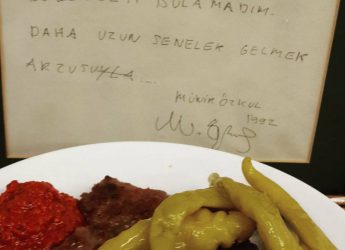 BULAMADIM.
DAHA UZUN SENELER GELMEK
ARZUSUYLA...
MÜNİR ÖZKUL
1992